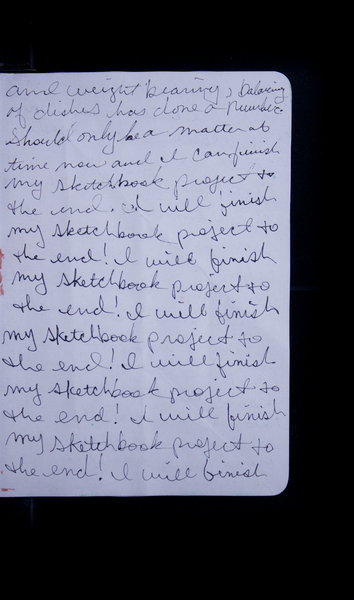 and weight bearing, Balancing
of dishes has done a number.
Should only be a matter of
time now and I can finish
my sketchbook project to
the end. I will finish
my sketchbook project to
the end! I will finish
my sketchbook project to
the end! I will finish
my sketchbook project to
the end! I will finish
my sketchbook project to
the end! I will finish
my sketchbook project to
the end! I will finish